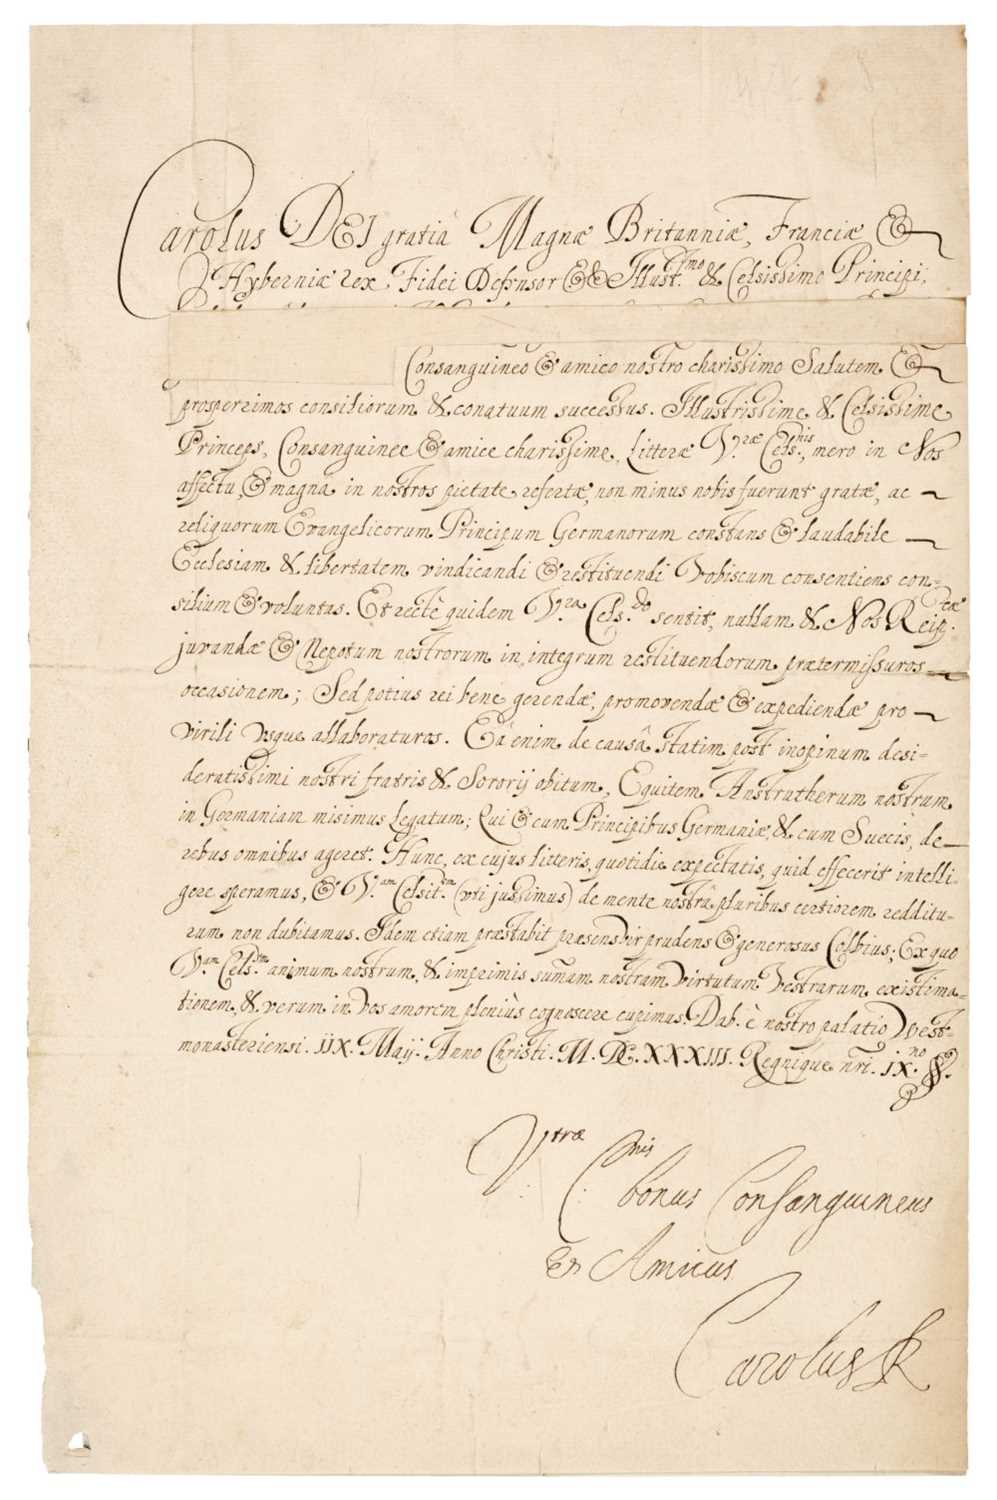 Carolus DEI gratiâ Magnæ Britanniæ, Franciæ &
Hyberniæ rex. Fidei Defensor &c Illust.mo & Celsissimo Principi,
Consanguineo & amico nostro charissimo Salutem &
prosperrimos consiliorum & conatuum successus. Illustrissime & Celsissime
Princeps, Consanguinee & amice charissime, Litteræ V.ræ Cels.nis, mero in Nos
affectu, & magna in nostros pietate refertæ, non minus nobis fuerunt gratæ, ac
reliquorum Evangelicorum Principum Germanorum constans & laudabile
Ecclesiam & libertatem vindicandi & restituendi Vobiscum consentiens con-
silium & voluntas. Et rectè quidem V.ra Cels.do sentit, nullam & Nos Reip.
juvandæ & Nepotum nostrorum in integrum restituendorum prætermissuros
occasionem; Sed potius rei bene gerendæ, promovendæ & expediendæ pro
virili usque allaboraturos. Eâ enim de causâ statim post inopinum desi-
deratissimi nostri fratris & Sororij obitum, Equitem Anstrutherum nostrum
in Germaniam misimus Legatum; Qui & cum Principibus Germaniæ, & cum Suecis, de
rebus omnibus ageret. Hunc, ex cujus litteris, quotidie expectatis, quid effecerit intelli-
gere speramus, & V.am Celsit.em (uti jussimus) de mente nostrâ pluribus certiorem redditu-
rum non dubitamus. Idem etiam præstabit præsens vir prudens & generosus Colbius; Ex quo
V.am Cels.em animum nostrum, & imprimis sum̃am nostram virtutum Vestrarum existima-
tionem, & verum in vos amorem pleniùs cognoscere cupimus. Dab. è nostro palatio West-
monasteriensi. IIX. Maij. Anno Christi. M. DC. XXXIII. Regnique nr̃i. IX.no
Vtræ C:nis
bonus Consanguineus
Et Amicus
Carolus R